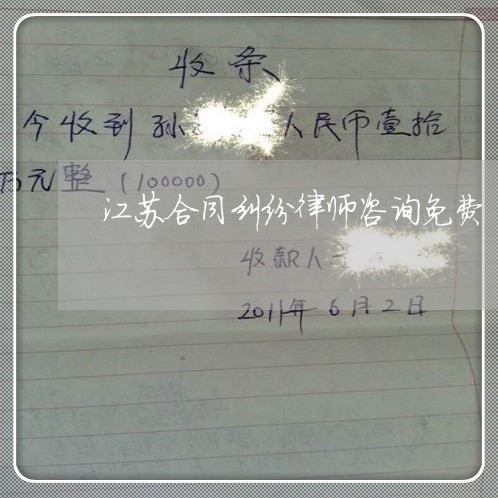 收条
今收到孙 人民币壹拾
万元整（100000）
江苏合同纠纷律师咨询免费
收款人
2011年6月2日